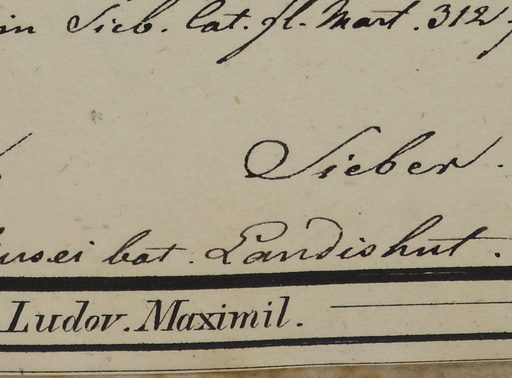 in Sieb. Cat. fl. Mart. 312
Sieber.
usei bot. Landishut.
Ludov. Maximil.